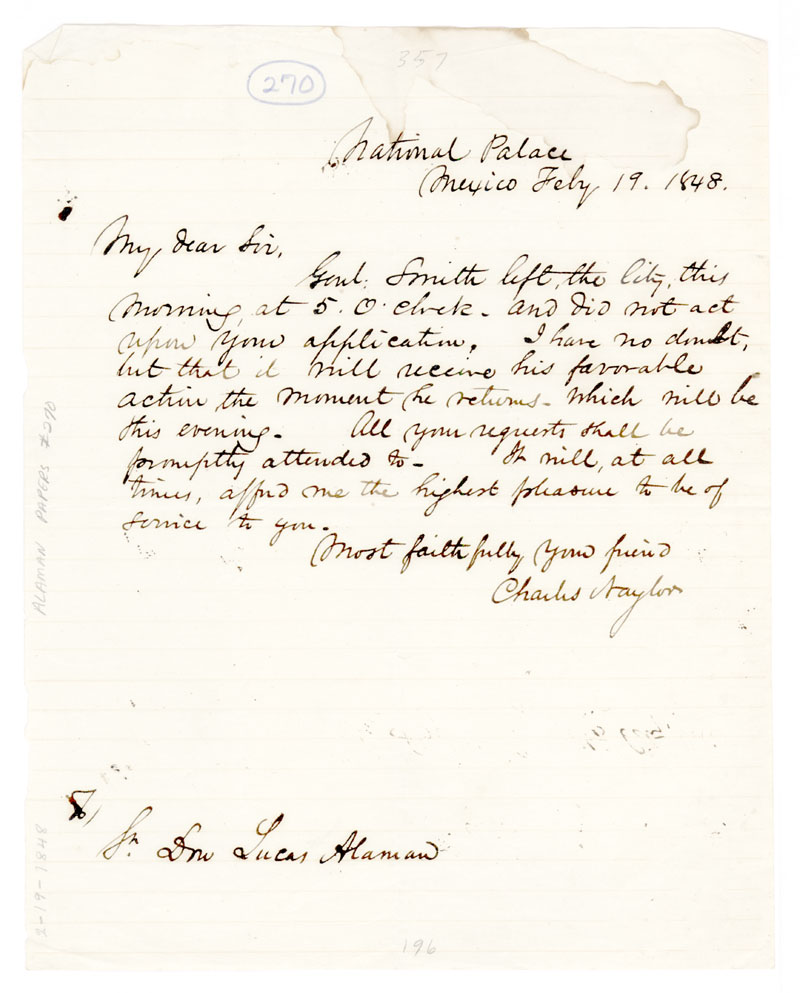 357
270
National Palace
Mexico Feby 19. 1848.
My dear Sir,
Genl. Smith left, the City, this
morning, at 5. O'clock - and did not act
upon your application. I have no doubt,
but that it will receive his favorable
action, the moment he returns - which will be
this evening. All your requests shall be
promptly attended to - It will, at all
times, afford me the highest pleasure to be of
service to you.
Most faithfully your friend
Charles Naylor
To,
Sr. Don Lucas Alaman
196
ALAMAN PAPERS #270
2-19-1848